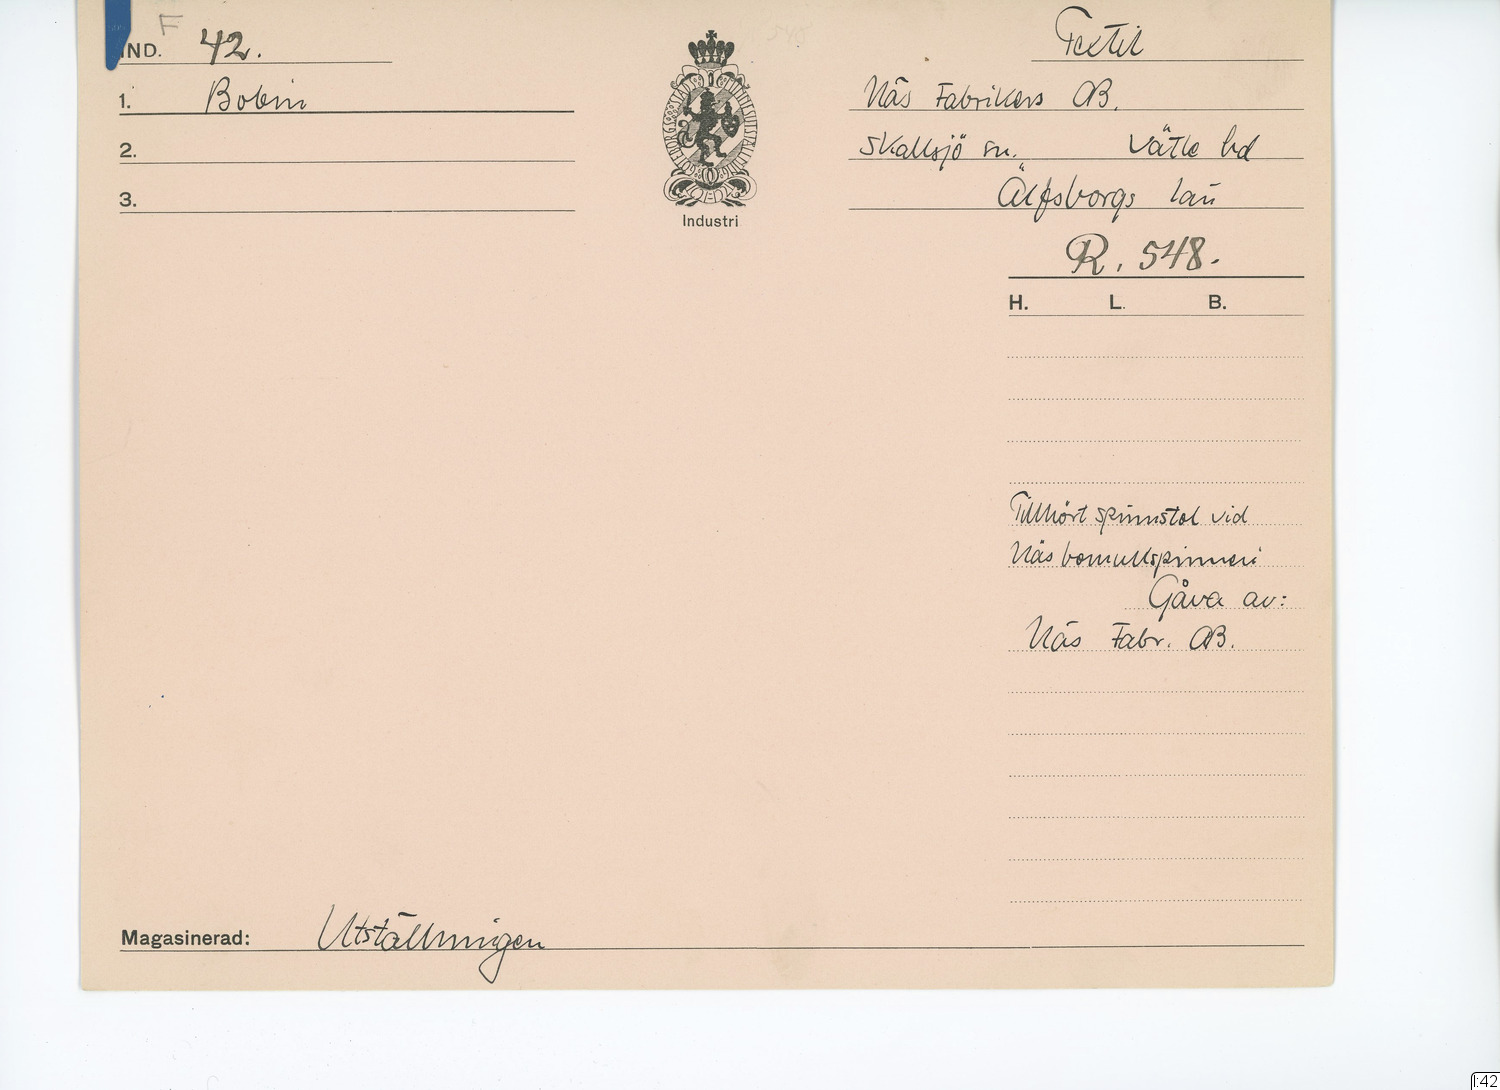 F
IND. 42.
1. Bobin
2.
3.
Industri
Textil
Näs Fabrikers AB.
Skallsjö sn. Vätle hd
Älfsborgs län
R. 548.
H. L. B.
Tillhört spinnstol vid
Näs bomullspinneri
Gåva av:
Näs Fabr. AB.
Magasinerad: Utställningen
I:42